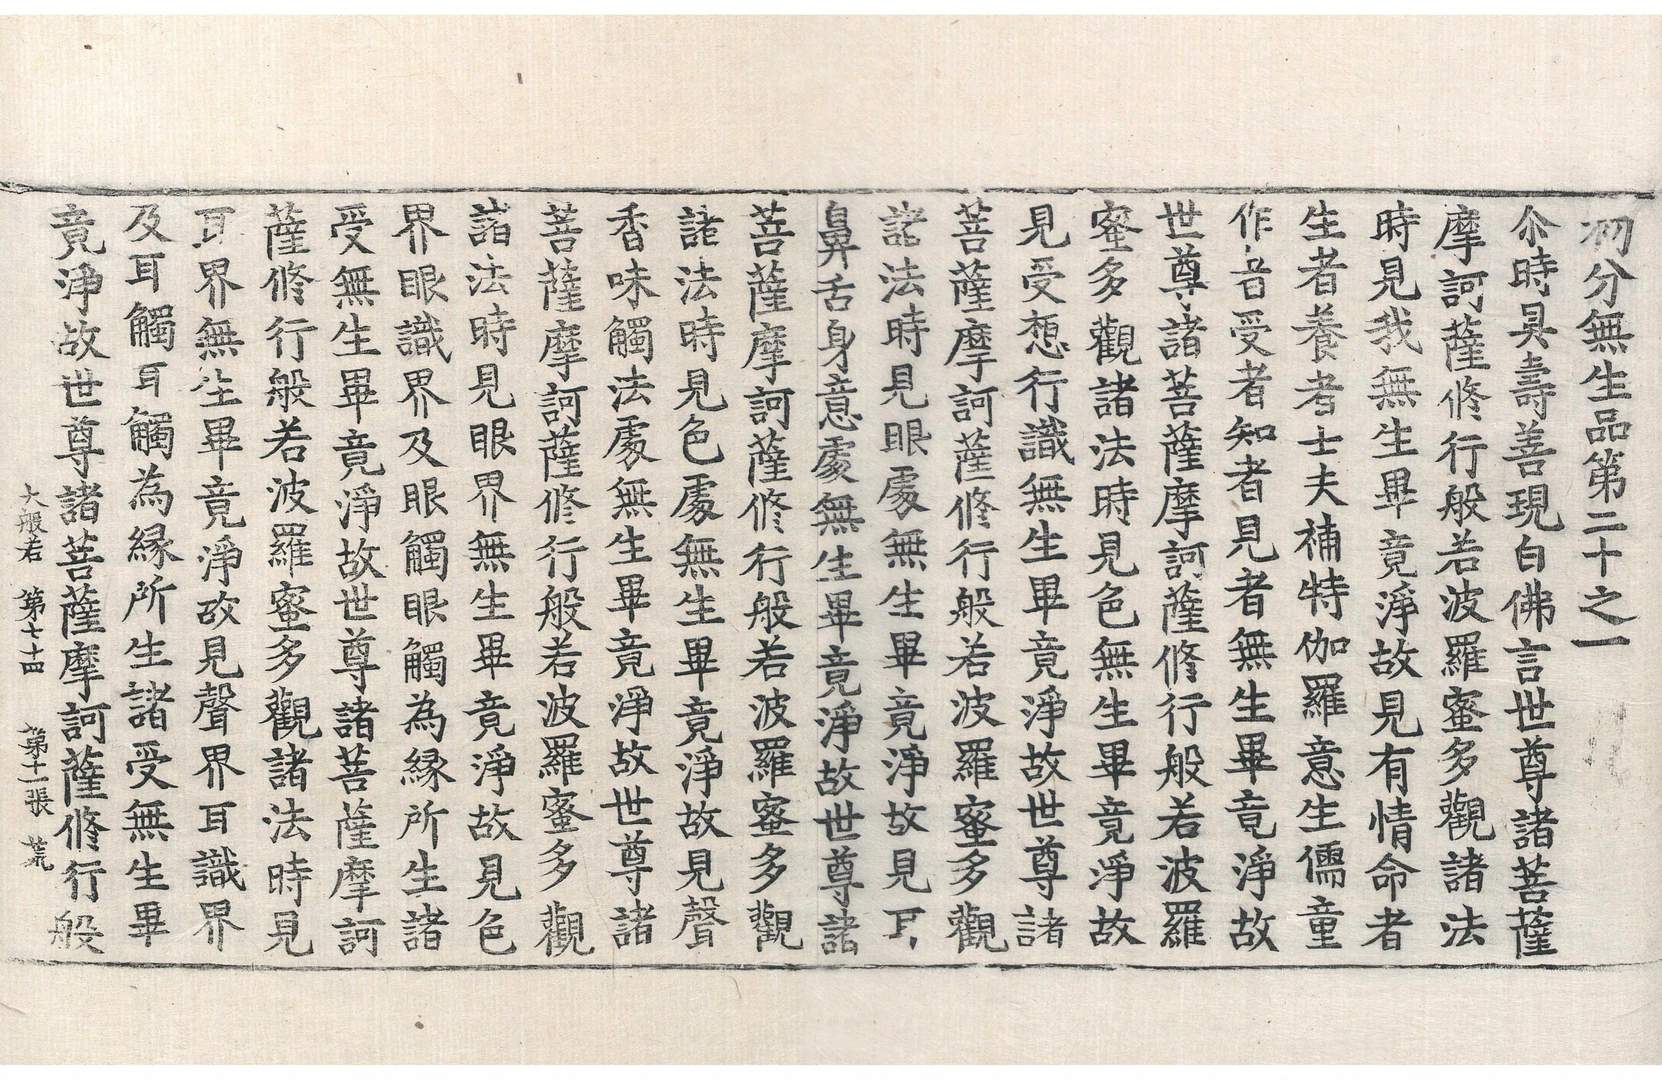 初分無生品第二十之一
尒時具壽善現白佛言世尊諸菩薩
摩訶薩修行般若波羅蜜多觀諸法
時見我無生畢竟淨故見有情命者
生者養者士夫補特伽羅意生儒童
作者受者知者見者無生畢竟淨故
世尊諸菩薩摩訶薩修行般若波羅
蜜多觀諸法時見色無生畢竟淨故
見受想行識無生畢竟淨故世尊諸
菩薩摩訶薩修行般若波羅蜜多觀
諸法時見眼處無生畢竟淨故見耳
鼻舌身意處無生畢竟淨故世尊諸
菩薩摩訶薩修行般若波羅蜜多觀
諸法時見色處無生畢竟淨故見聲
香味觸法處無生畢竟淨故世尊諸
菩薩摩訶薩修行般若波羅蜜多觀
諸法時見眼界無生畢竟淨故見色
界眼識界及眼觸眼觸為緣所生諸
受無生畢竟淨故世尊諸菩薩摩訶
薩修行般若波羅蜜多觀諸法時見
耳界無生畢竟淨故見聲界耳識界
及耳觸耳觸為緣所生諸受無生畢
竟淨故世尊諸菩薩摩訶薩修行般
大般若 第七十四 第十一張 荒